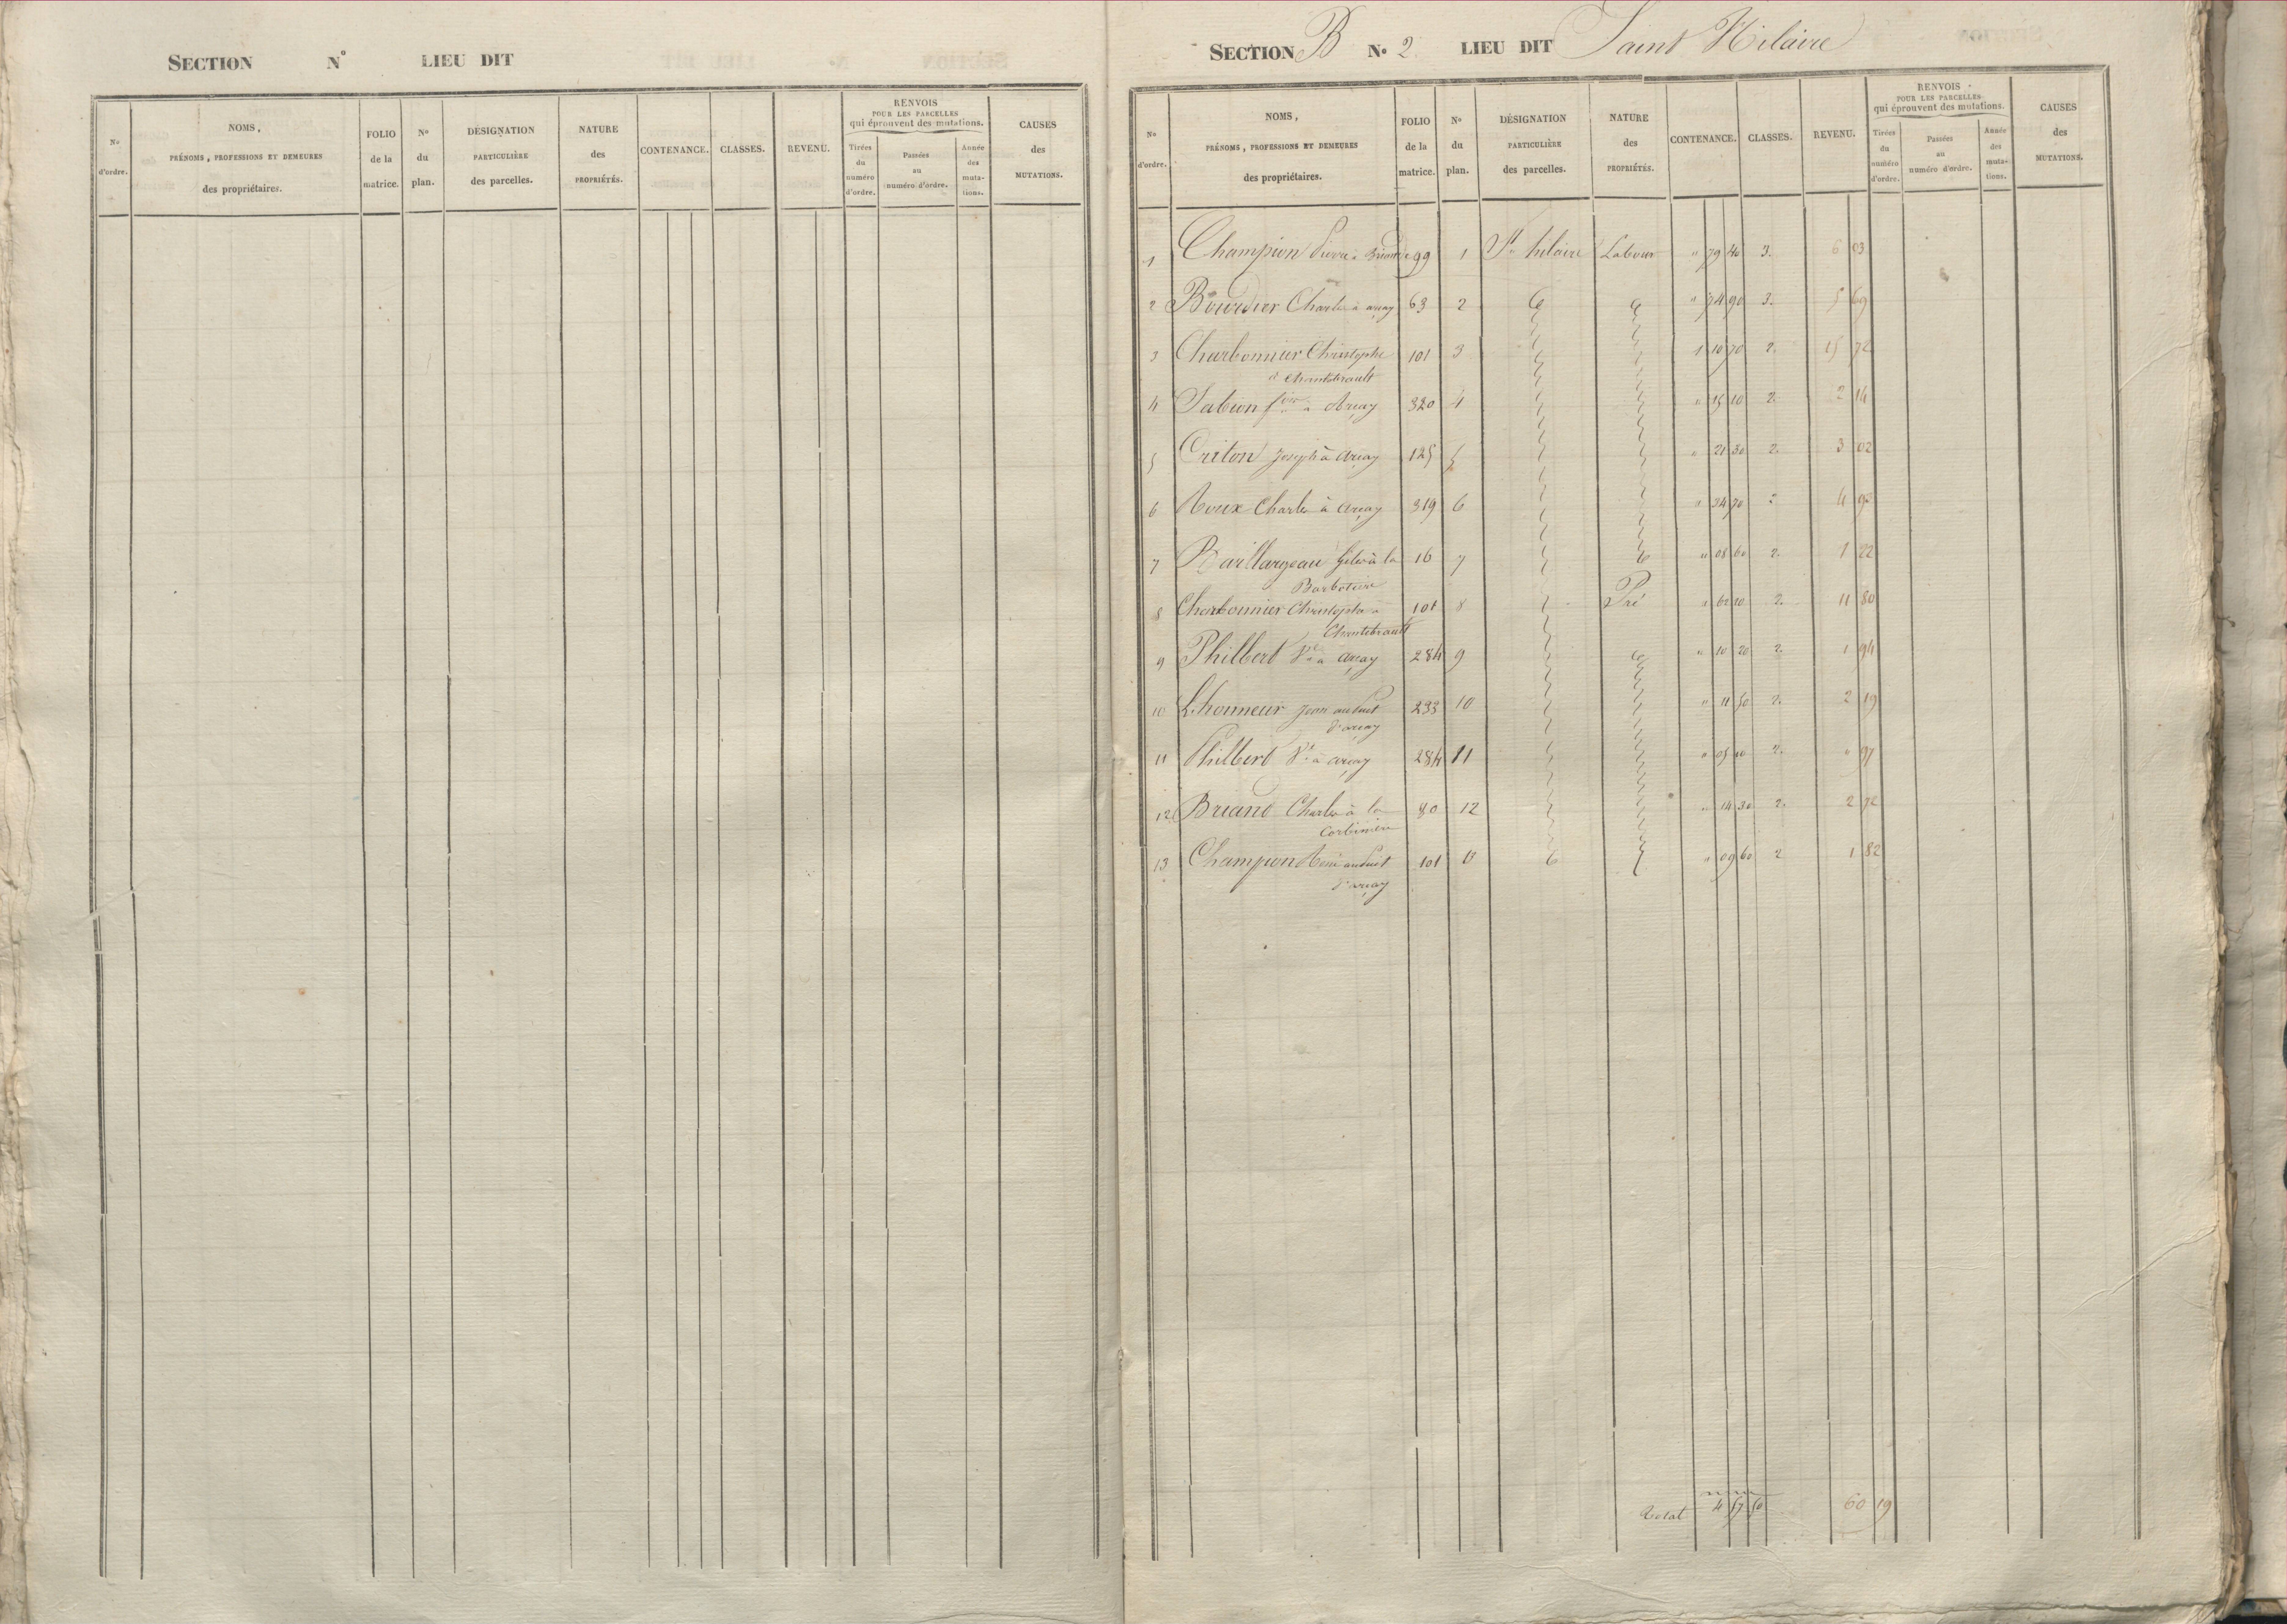 SECTION N° LIEU DIT
Nos d'ordre. NOMS, PRÉNOMS, PROFESSIONS ET DEMEURES des propriétaires. FOLIO de la matrice. Nos du plan. DÉSIGNATION PARTICULIÈRE des parcelles. NATURE des PROPRIÉTÉS. CONTENANCE. CLASSES. REVENU. RENVOIS POUR LES PARCELLES qui éprouvent des mutations. Tirées du numéro d'ordre. Passées au numéro d'ordre. Année des muta-tions. CAUSES des MUTATIONS.
SECTION B N° 2 LIEU DIT Saint Hilaire
Nos d'ordre. NOMS, PRÉNOMS, PROFESSIONS ET DEMEURES des propriétaires. FOLIO de la matrice. Nos du plan. DÉSIGNATION PARTICULIÈRE des parcelles. NATURE des PROPRIÉTÉS. CONTENANCE. CLASSES. REVENU. RENVOIS POUR LES PARCELLES qui éprouvent des mutations. Tirées du numéro d'ordre. Passées au numéro d'ordre. Année des muta-tions. CAUSES des MUTATIONS.
1 Champion Pierre à 99 1 St hilaire Labour " 79 40 3. 6 03
2 Bourdier Charles à arçay 63 2 " 74 90 3. 5 69
3 Charbonnier Christophe 101 3 1 10 70 2. 15 72
à Chantebrault
4 Sabion à Arçay 320 4 " 15 10 2. 2 14
5 Criton Joseph à Arçay 125 5 " 21 30 2. 3 02
6 Roux Charles à Arçay 319 6 " 34 70 2 4 93
7 Baillargeau à la 16 7 " 08 60 2. 1 22
Barbotière
8 Charbonnier Christophe à 101 8 Pré " 62 10 2. 11 80
Chantebrault
9 Philbert Ve à Arçay 284 9 " 10 20 2. 1 94
10 Lhonneur Jean au Puit 233 10 " 11 50 2. 2 19
d'arçay
11 Philbert Ve à arçay 284 11 " 05 10 2. " 97
12 Briand Charles à la 80 12 " 14 30 2. 2 72
Corbinière
13 Champion René au Puit 101 13 " 09 60 2 1 82
d'arçay
total 4 57 50 60 19